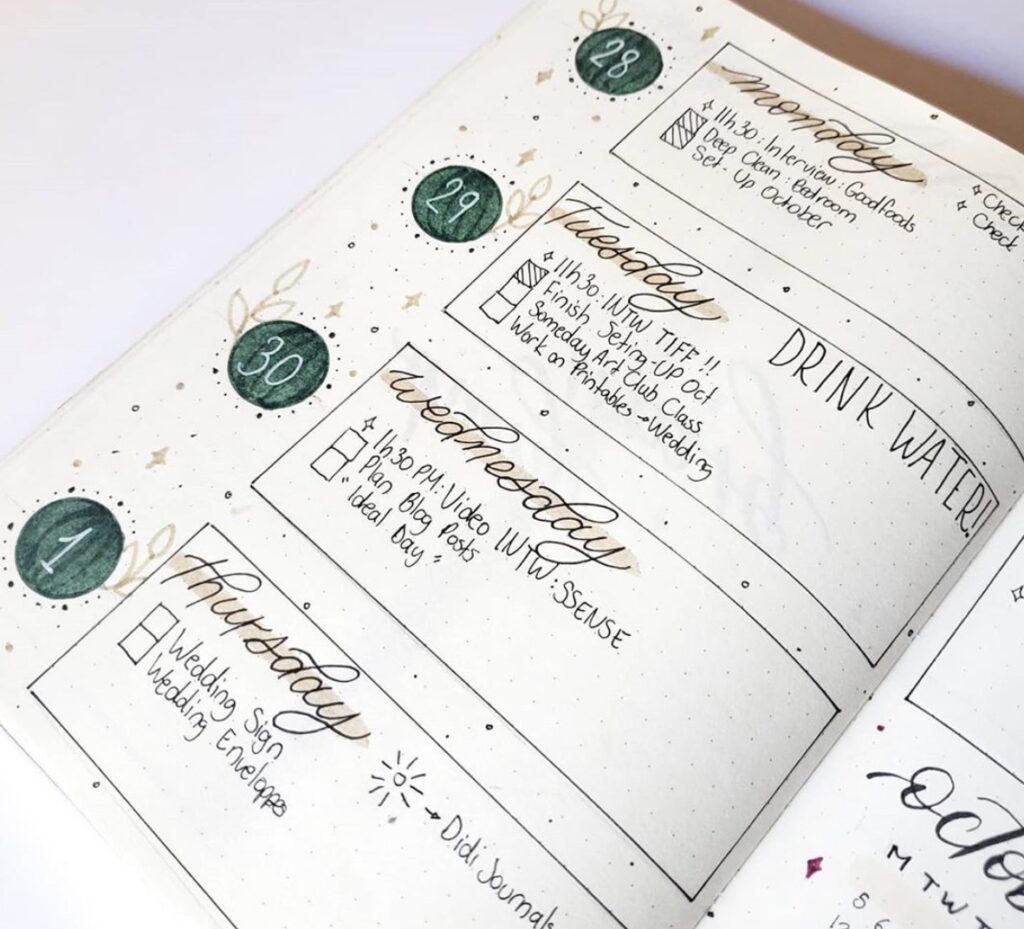 28
monday
11h30: Interview: Goodfoods
Deep Clean: Bedroom
Set-Up October
Check
Check
29
Tuesday
11h30: INTW TIFF !!
Finish Seting-UP Oct
Someday Art Club Class
Work on Printables → Wedding
DRINK WATER!!
30
wednesday
11h30 PM: Video INTW: SSENSE
Plan Blog Posts
"Ideal Day"
1
thursday
Wedding Sign
Wedding Enveloppes
→ Didi Journals
Octob
M T W T
5 6
12